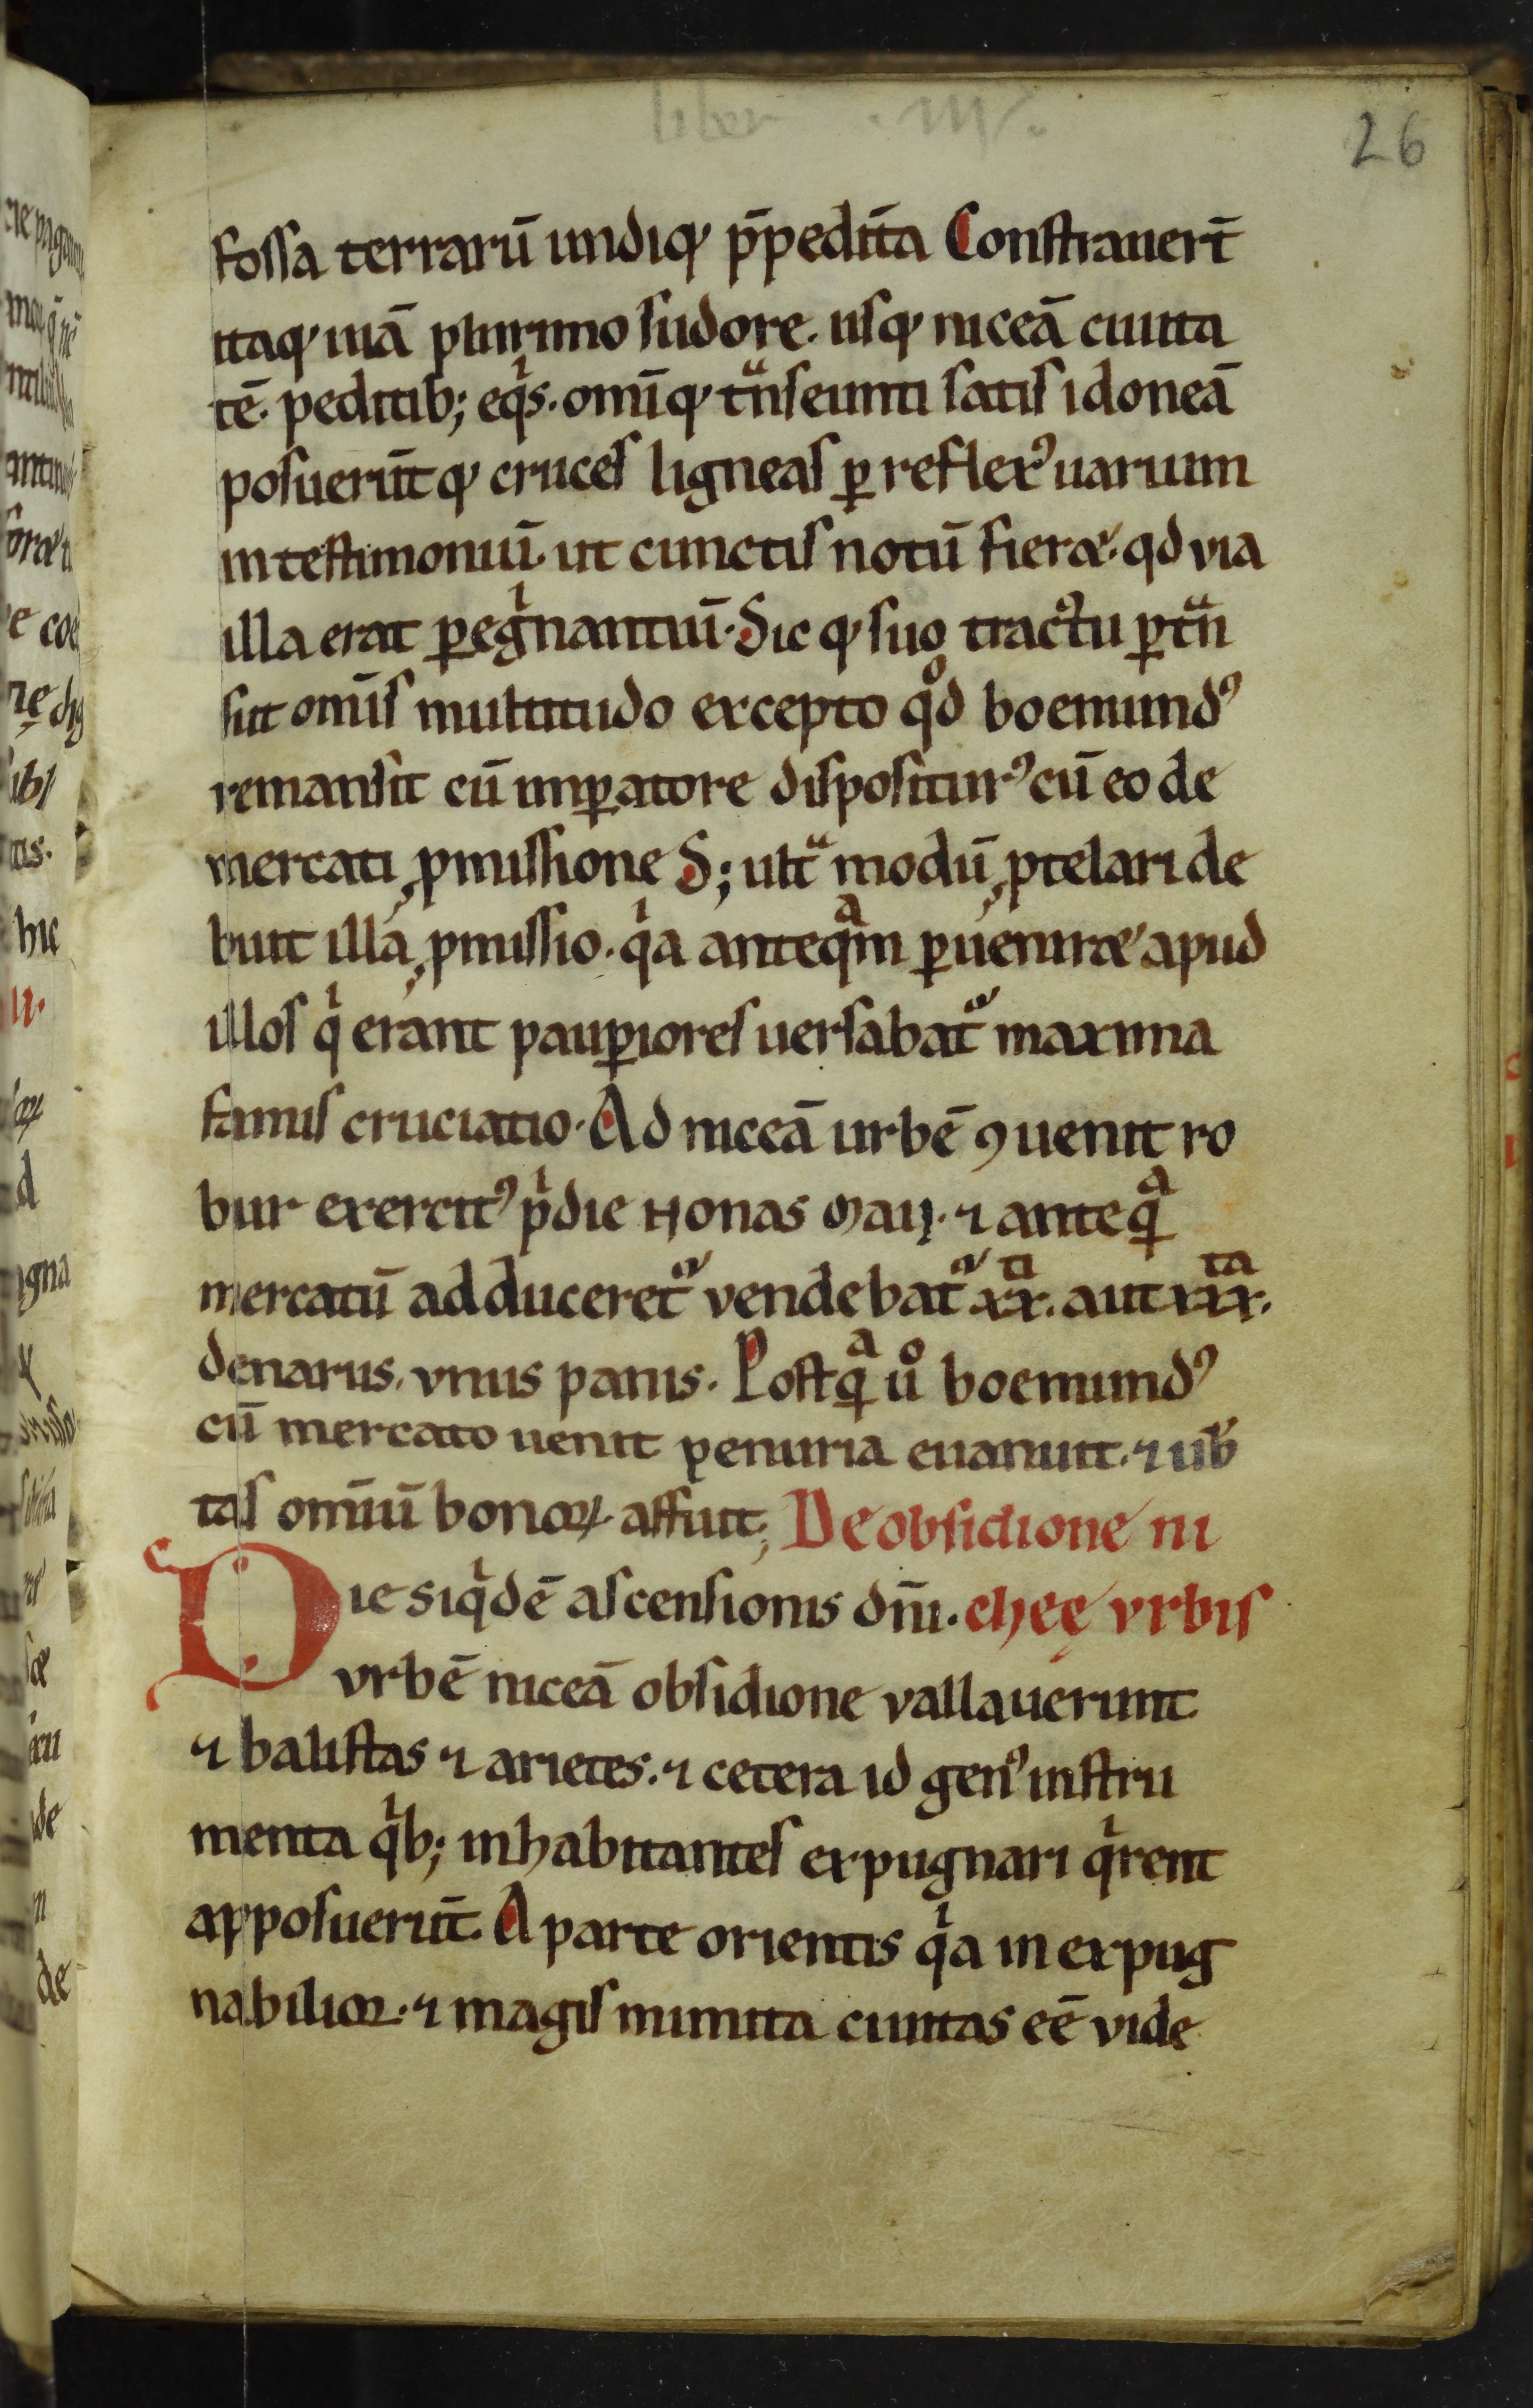 liber . III .
26
fossa terrarū undiq; p̄pedit̄a Constrauer̄t
itaq; uiā plurimo sudore. usq; niceā ciuita
tē. peditib; eqͥs. om̄iq; tͣnseunti satis idoneā
posuer̄ut q; cruces ligneas ꝑ reflexꝰ uiarum
in testimoniū. ut cunctis notū fieret. qd via
illa erat ꝑegͥnantiū. Sic q; suo tractu ꝑtͣn
siit om̄is multitudo excepto qͦd boemundꝰ
remansit cū imꝑatore dispositurꝰ cū eo de
mercati ꝓmissione S; ultͣ modū ꝓtelari de
buit illa ꝓmissio. qͥa anteqͣm ꝑueniret apud
illos qͥ erant pauꝑiores uersabat᷑ maxima
famis cruciatio. Ad niceā urbē ꝯuenit ro
bur exercitꝰ pͥdie Nonas Maii. ⁊ anteqͣ̄
mercatū adduceret᷑ vendebat᷑ xx.ti aut xxx.ta
denariis. vnus panis. Postqͣ̄ uͦ boemundꝰ
cū mercato uenit penuria euanuit. ⁊ ub̄
tas om̄iū bonoꝝ affuit; De obsidione ni
Die siqͥdē ascensionis dn̄i. cheę vrbis
vrbē niceā obsidione vallauerunt
⁊ balistas ⁊ arietes. ⁊ cetera id genꝰ instru
menta qͥb; inhabitantes expugnari qͥrent
apposuer̄ut. A parte orientis qͥa inexpug
nabilior. ⁊ magis munita ciuitas eē vide